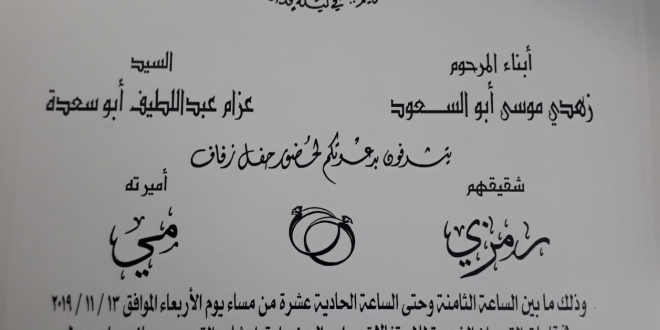 أبناء المرحوم السيد
زهدي موسى أبو السعود عزام عبداللطيف أبو سعدة
يتشرفون بدعوتكم لحضور حفل زفاف
شقيقهم أميرته
رمزي مي
وذلك ما بين الساعة الثامنة وحتى الساعة الحادية عشرة من مساء يوم الأربعاء الموافق ٢٠١٩/١١/١٣